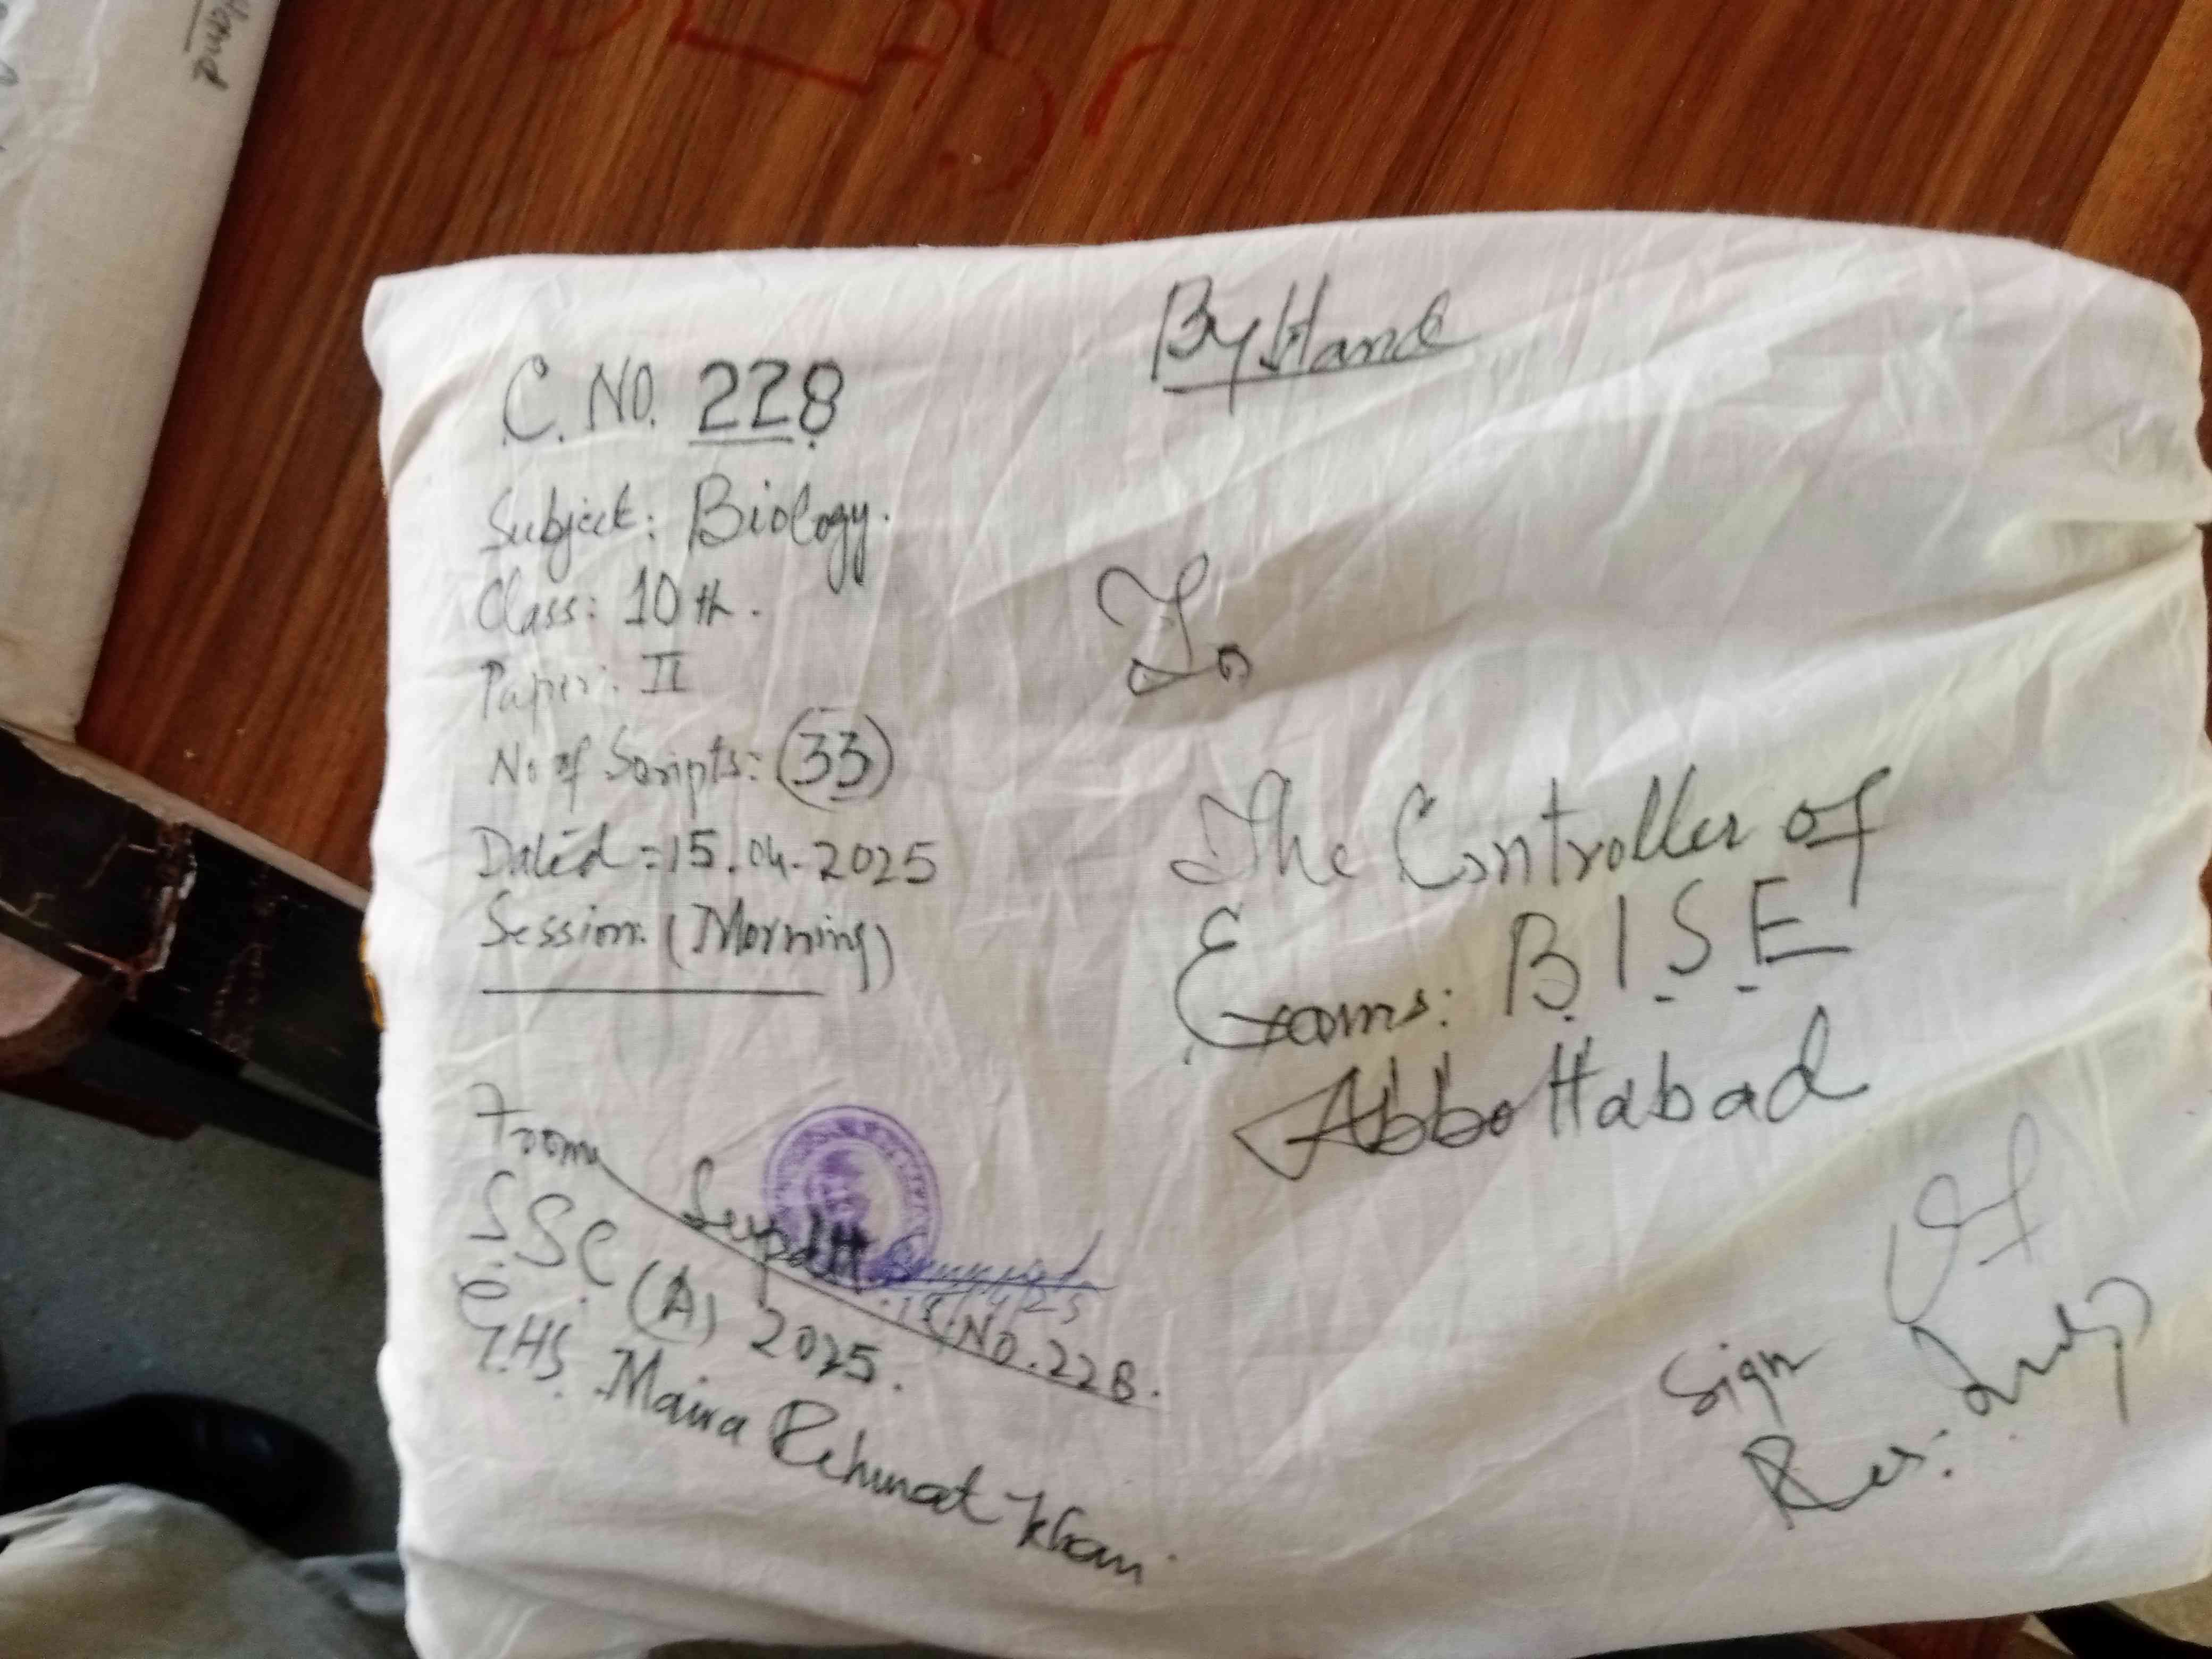 Hand
By Hand
C. NO. 228
Subject: Biology.
Class: 10th.
Paper: II
No of Scripts: (33)
Dated = 15.04.2025
Session: (Morning)
To
The Controller of
Exams: B.I.S.E
Abbottabad
From
Supdtt
C.NO. 228.
SSC (A) 2025.
G.HS. Maira Rehmat Khan.
Sign
of
Res: